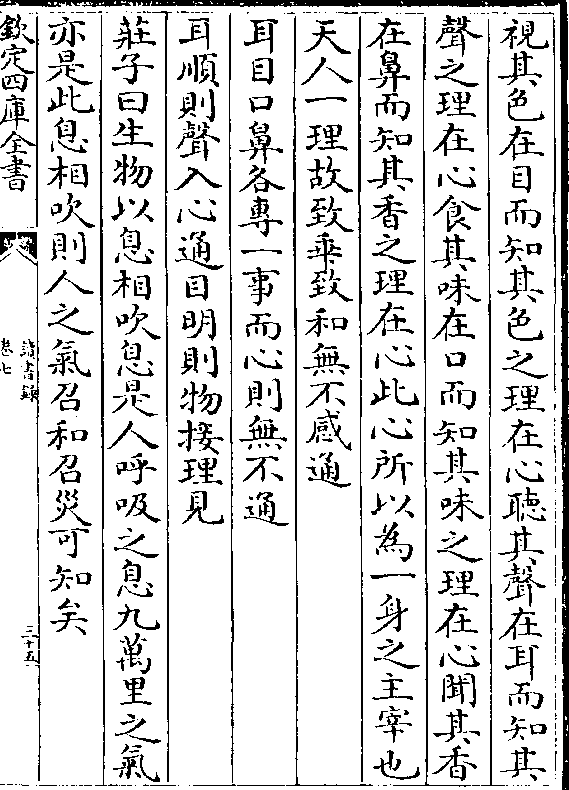 視其色在目而知其色之理在心聽其聲在耳而知其
聲之理在心食其味在口而知其味之理在心聞其香
在鼻而知其香之理在心此心所以為一身之主宰也
天人一理故致乖致和無不感通
耳目口鼻各專一事而心則無不通
耳順則聲入心通目明則物接理見
莊子曰生物以息相吹息是人呼吸之息九萬里之氣
亦是此息相吹則人之氣召和召災可知矣
欽定四庫全書
讀書錄
卷七
三十五